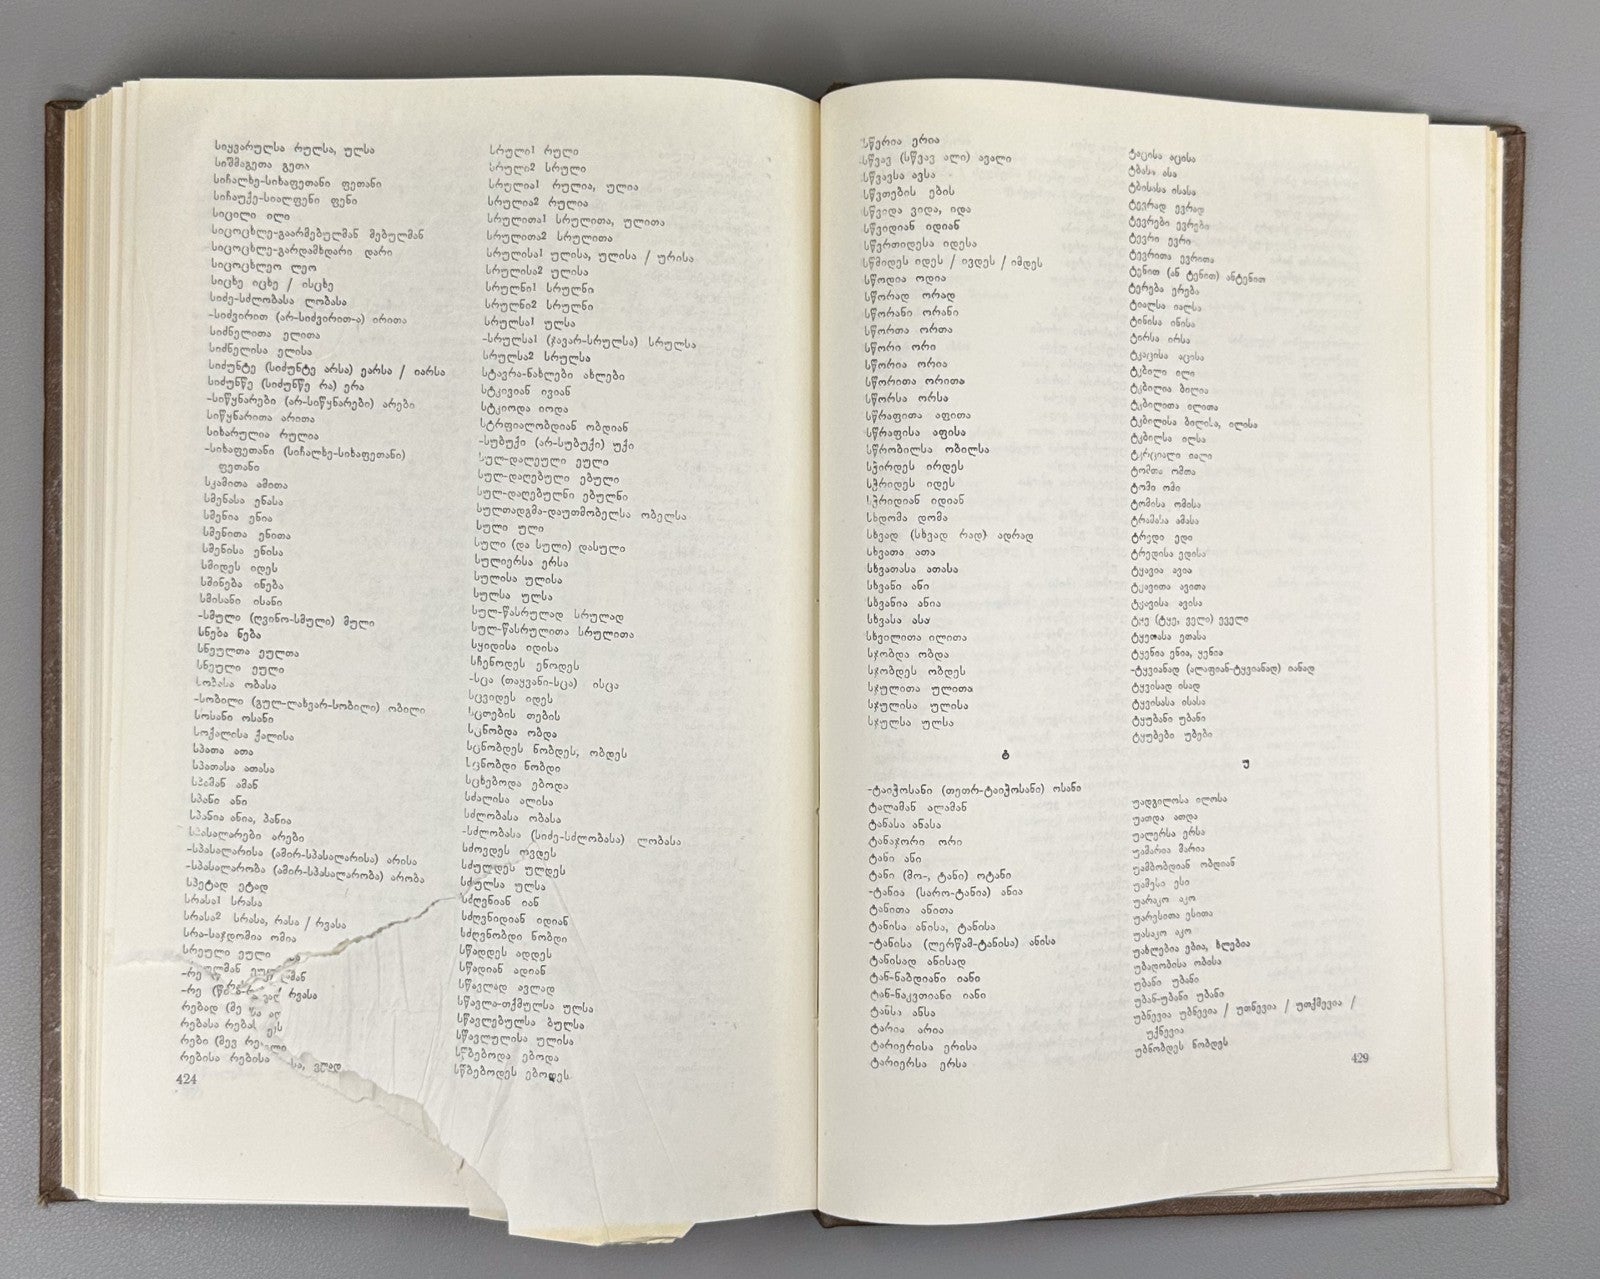 სიყვარულსა რულსა, ულსა
სიშმაგეთა გეთა
სიჩალხე-სიხაფეთანი ფეთანი
სიჩაუქე-სიალფენი ფენი
სიცილი ილი
სიცოცხლე-გაარმებულმან მებულმან
სიცოცხლე-გარდამხდარი დარი
სიცოცხლეო ლეო
სიცხე იცხე / ისცხე
სიძე-სძლობასა ლობასა
-სიძვირით (არ-სიძვირით-ა) ირითა
სიძნელითა ელითა
სიძნელისა ელისა
სიძუნტე (სიძუნტე არსა) ეარსა / იარსა
სიძუნწე (სიძუნწე რა) ერა
-სიწყნარები (არ-სიწყნარები) არები
სიწყნარითა არითა
სიხარულია რულია
-სიხაფეთანი (სიჩალხე-სიხაფეთანი)
ფეთანი
სკამითა ამითა
სმენასა ენასა
სმენია ენია
სმენითა ენითა
სმენისა ენისა
სმიდეს იდეს
სმინება ინება
სმისანი ისანი
-სმული (ღვინო-სმული) მული
სნება ნება
სნეულთა ეულთა
სნეული ეული
სობასა ობასა
-სობილი (გულ-ლახვარ-სობილი) ობილი
სოსანი ოსანი
სოქალისა ქალისა
სპათა ათა
სპათასა ათასა
სპამან ამან
სპანი ანი
სპანია ანია, პანია
სპასალარები არები
-სპასალარისა (ამირ-სპასალარისა) არისა
-სპასალარობა (ამირ-სპასალარობა) არობა
სპეტად ეტად
სრასა1 სრასა
სრასა2 სრასა, რასა / რვასა
სრა-საჯდომია ომია
სრეული ეული
რებისა რებისა
424
სრული1 რული
სრული2 სრული
სრულია1 რულია, ულია
სრულია2 რულია
სრულითა1 სრულითა, ულითა
სრულითა2 სრულითა
სრულისა1 ულისა, ულისა / ურისა
სრულისა2 ულისა
სრულნი1 სრულნი
სრულნი2 სრულნი
სრულსა1 ულსა
-სრულსა1 (ჯავარ-სრულსა) სრულსა
სრულსა2 სრულსა
სტავრა-ნახლები ახლები
სტკივიან ივიან
სტკიოდა იოდა
სტრფიალობდიან ობდიან
-სუბუქი (არ-სუბუქი) უქი
სულ-დალეული ეული
სულ-დაღებული ებული
სულ-დაღებულნი ებულნი
სულთადგმა-დაუთმობელსა ობელსა
სული ული
სული (და სული) დასული
სულიერსა ერსა
სულისა ულისა
სულსა ულსა
სულ-წასრულად სრულად
სულ-წასრულითა სრულითა
სყიდისა იდისა
სჩენოდეს ენოდეს
-სცა (თაყვანი-სცა) ისცა
სცვიდეს იდეს
სცთების თების
სცნობდა ობდა
სცნობდეს ნობდეს, ობდეს
სცნობდი ნობდი
სცხებოდა ებოდა
სძალისა ალისა
სძლობასა ობასა
-სძლობასა (სიძე-სძლობასა) ლობასა
სძოვდეს ოვდეს
სძულდეს ულდეს
სძულსა ულსა
სძღვნიან იან
სძღვნიდიან იდიან
სძღვნობდი ნობდი
სწადდეს ადდეს
სწადიან ადიან
სწავლად ავლად
სწავლა-თქმულსა ულსა
სწავლებულსა ბულსა
სწავლულისა ულისა
სწბებოდა ებოდა
სწბებოდეს ებოდეს
სწერია ერია
სწვავ (სწვავ ალი) ავალი
სწვავსა ავსა
სწვთების ების
სწვიდა ვიდა, იდა
სწვიდიან იდიან
სწერთიდესა იდესა
სწმიდეს იდეს / ივდეს / იმდეს
სწოდია ოდია
სწორად ორად
სწორანი ორანი
სწორთა ორთა
სწორი ორი
სწორია ორია
სწორითა ორითა
სწორსა ორსა
სწრაფითა აფითა
სწრაფისა აფისა
სწრობილსა ობილსა
სჭირდეს ირდეს
სჭრიდეს იდეს
სჭრიდიან იდიან
სხდომა დომა
სხვად (სხვად რად) ადრად
სხვათა ათა
სხვათასა ათასა
სხვანი ანი
სხვანია ანია
სხვასა ასა
სხვილითა ილითა
სჯობდა ობდა
სჯობდეს ობდეს
სჯულითა ულითა
სჯულისა ულისა
სჯულსა ულსა
ტ
-ტაიჭოსანი (თეთრ-ტაიჭოსანი) ოსანი
ტალამან ალამან
ტანასა ანასა
ტანაჯორი ორი
ტანი ანი
ტანი (მო-, ტანი) ოტანი
-ტანია (სარო-ტანია) ანია
ტანითა ანითა
ტანისა ანისა, ტანისა
-ტანისა (ლერწამ-ტანისა) ანისა
ტანისად ანისად
ტან-ნაბდიანი იანი
ტან-ნაკვთიანი იანი
ტანსა ანსა
ტარია არია
ტარიერისა ერისა
ტარიერსა ერსა
ტაცისა აცისა
ტბასა ასა
ტბისასა ისასა
ტევრად ევრად
ტევრები ევრები
ტევრი ევრი
ტევრითა ევრითა
ტენით (ან ტენით) ანტენით
ტერება ერება
ტიალსა იალსა
ტინისა ინისა
ტირსა ირსა
ტკაცისა აცისა
ტკბილი ილი
ტკბილია ბილია
ტკბილითა ილითა
ტკბილისა ბილისა, ილისა
ტკბილსა ილსა
ტკრციალი იალი
ტომთა ომთა
ტომი ომი
ტომისა ომისა
ტრამასა ამასა
ტრედი ედი
ტრედისა ედისა
ტყავია ავია
ტყავითა ავითა
ტყავისა ავისა
ტყე (ტყე, ველი) ეველი
ტყეთასა ეთასა
ტყვენია ენია, ყენია
-ტყვიანად (ალაფიან-ტყვიანად) იანად
ტყვისად ისად
ტყვისასა ისასა
ტყუბანი უბანი
ტყუბები უბები
უ
უადგილოსა ილოსა
უათდა ათდა
უალერსა ერსა
უამარია მარია
უამბობდიან ობდიან
უამესი ესი
უარაკო აკო
უარესითა ესითა
უასაკო აკო
უახლებია ებია, ხლებია
უბადობისა ობისა
უბანი უბანი
უბან-უბანი უბანი
უბნევია უბნევია / უთნევია / უთქმევია /
უქნევია
უბნობდეს ნობდეს
429